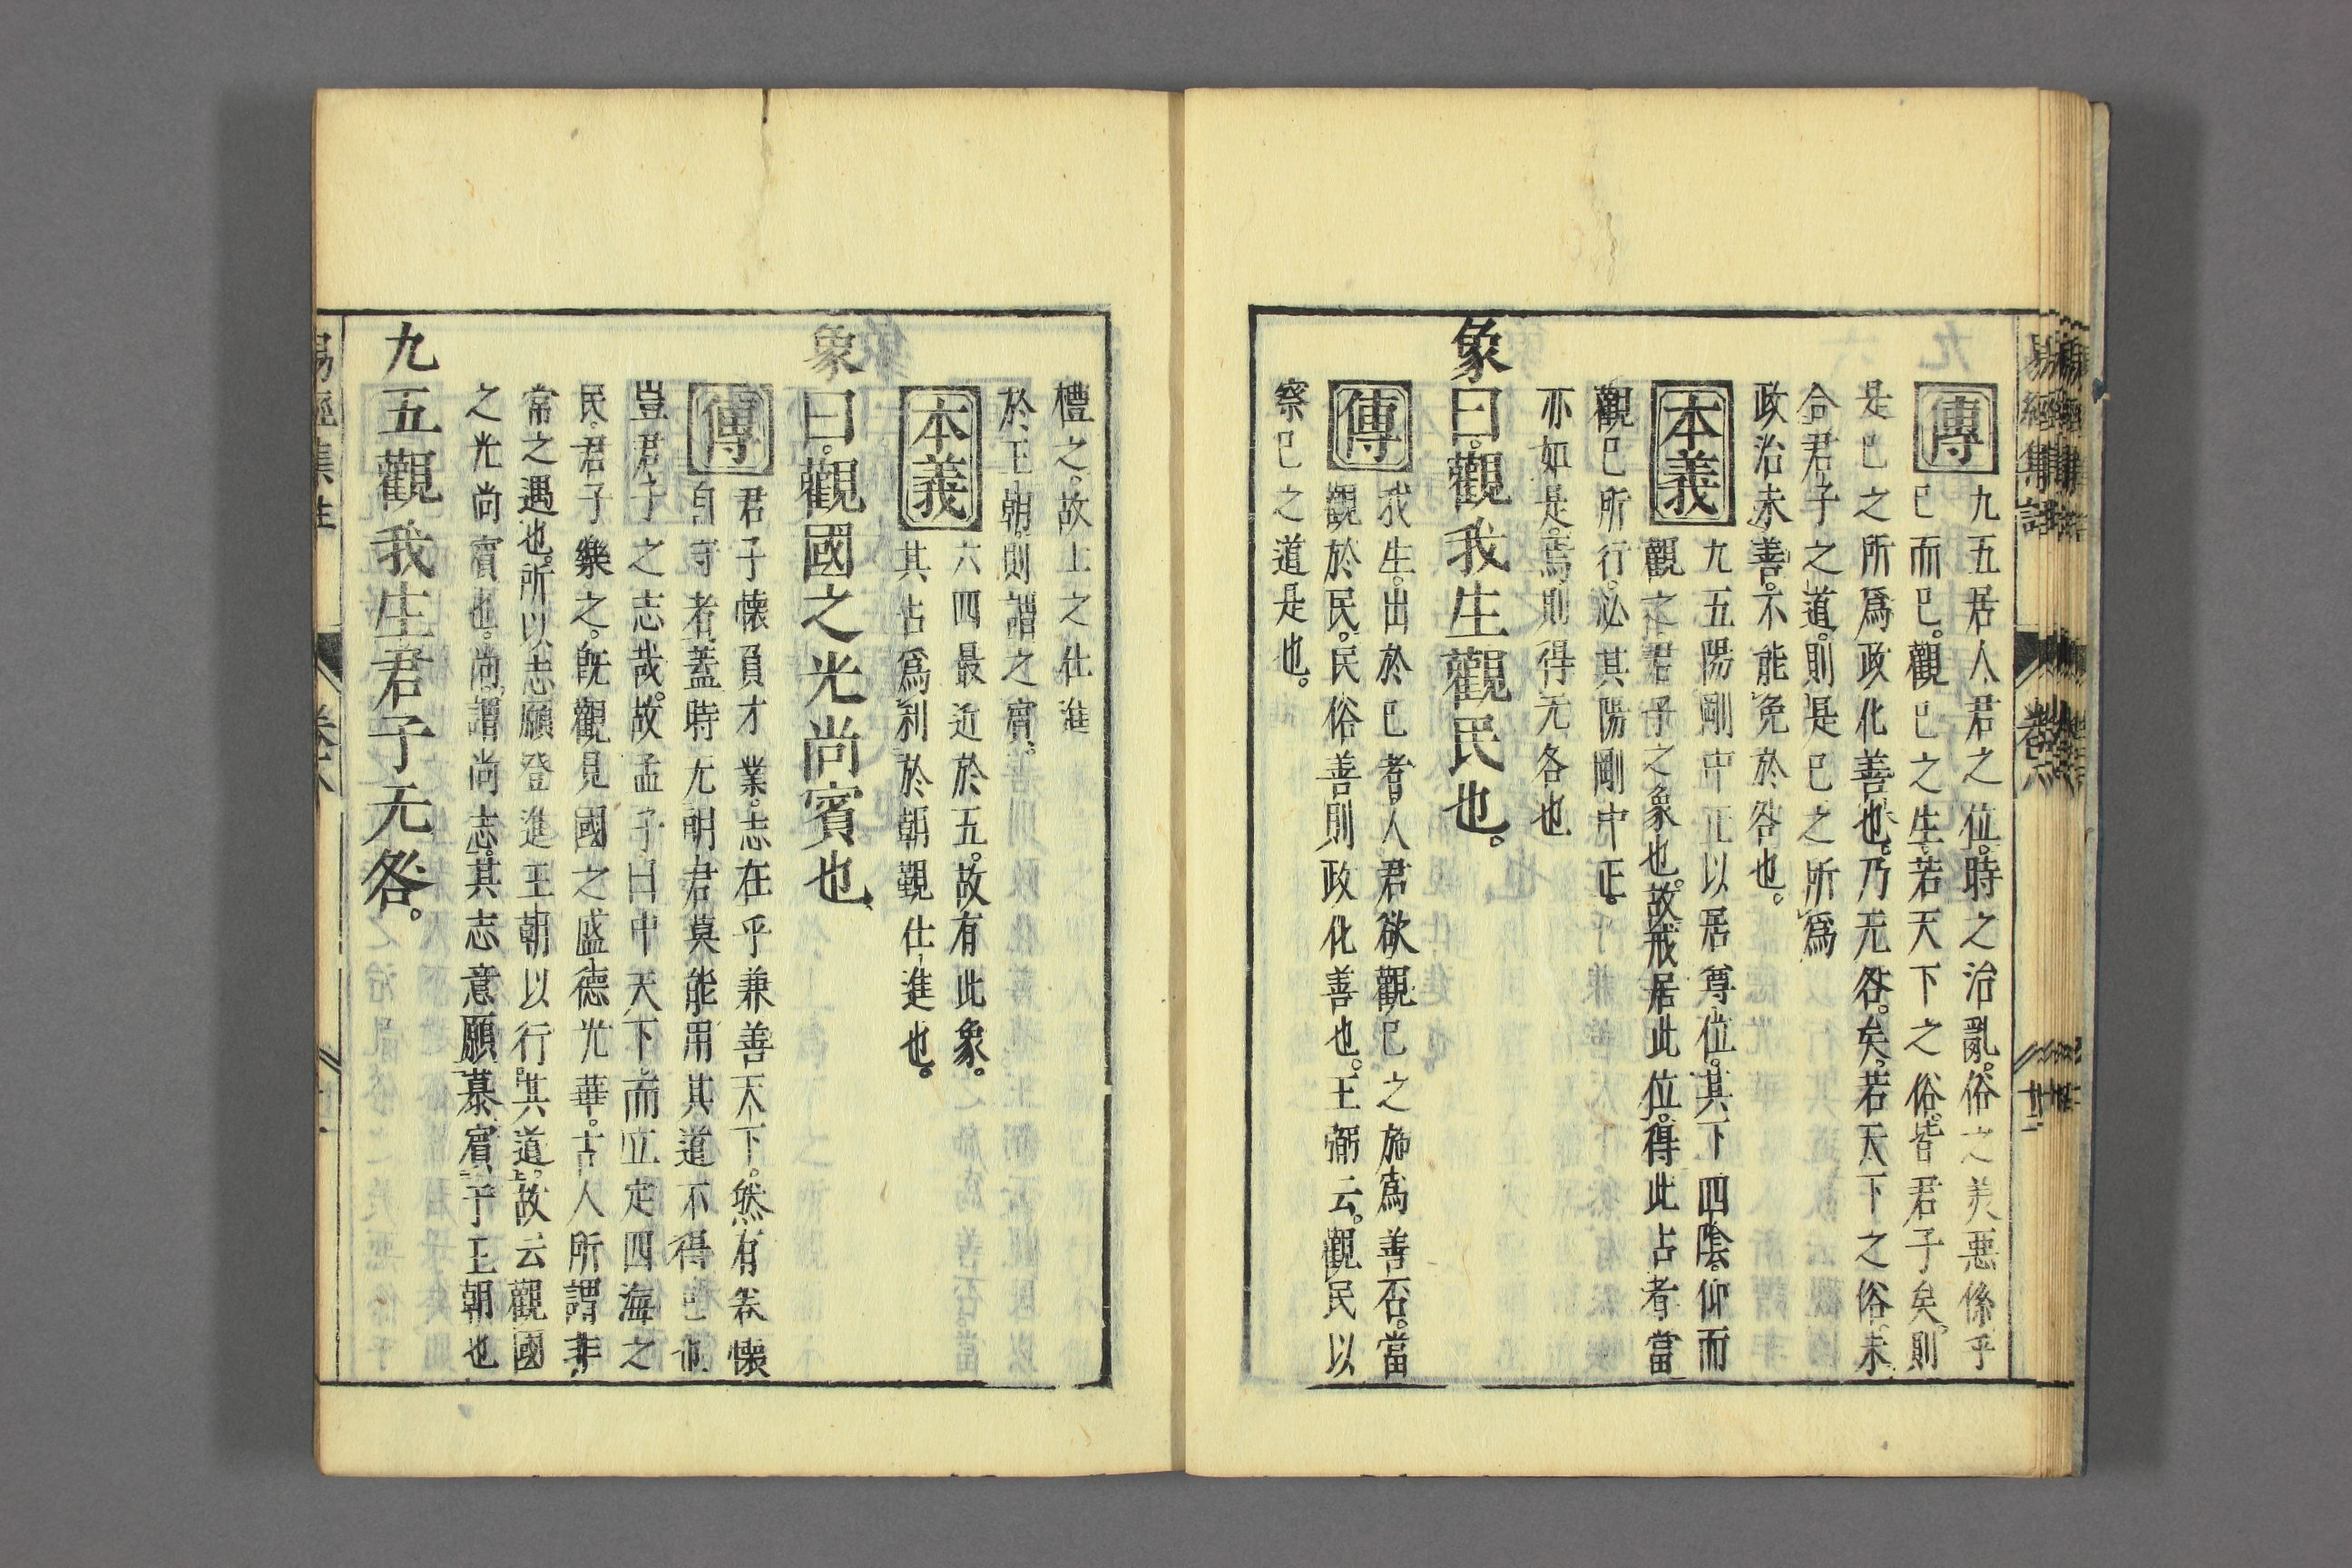 易經集註 卷六 十二
傳 九五居人君之位。時之治亂。俗之美惡係乎
己而已。觀己之生。若天下之俗。皆君子矣。則
是己之所爲政化善也。乃无咎。矣。若天下之俗。未
合君子之道。則是己之所爲
政治未善。不能免於咎也。
本義 九五陽剛中正以居尊位。其下四陰。仰而
觀之君子之象也。故戒居此位。得此占者當
觀己所行。必其陽剛中正。
亦如是。焉則得无咎也
象曰。觀我生觀民也。
傳 我生。出於己者。人君欲觀己之施爲善否。當
觀於民。民俗善則政化善也。王弼云。觀民以
察己之道是也。
禮之。故士之仕進
於王朝。則謂之賓。
本義 六四最近於五。故有此象。
其占爲利於朝覲仕進也。
象曰。觀國之光尚賓也
傳 君子懷負才業。志在乎兼善天下。然有卷懷
自守者。蓋時无明君莫能用其道不得已也
豈君子之志哉。故孟子曰中天下。而立定四海之
民。君子樂之。既觀見國之盛德光華。古人所謂非
常之遇也。所以志願登進王朝以行。其道。故云觀國
之光尚賓也。尚謂尚志。其志意願慕賓于王朝也
九五觀我生君子无咎。
易經集註 卷六